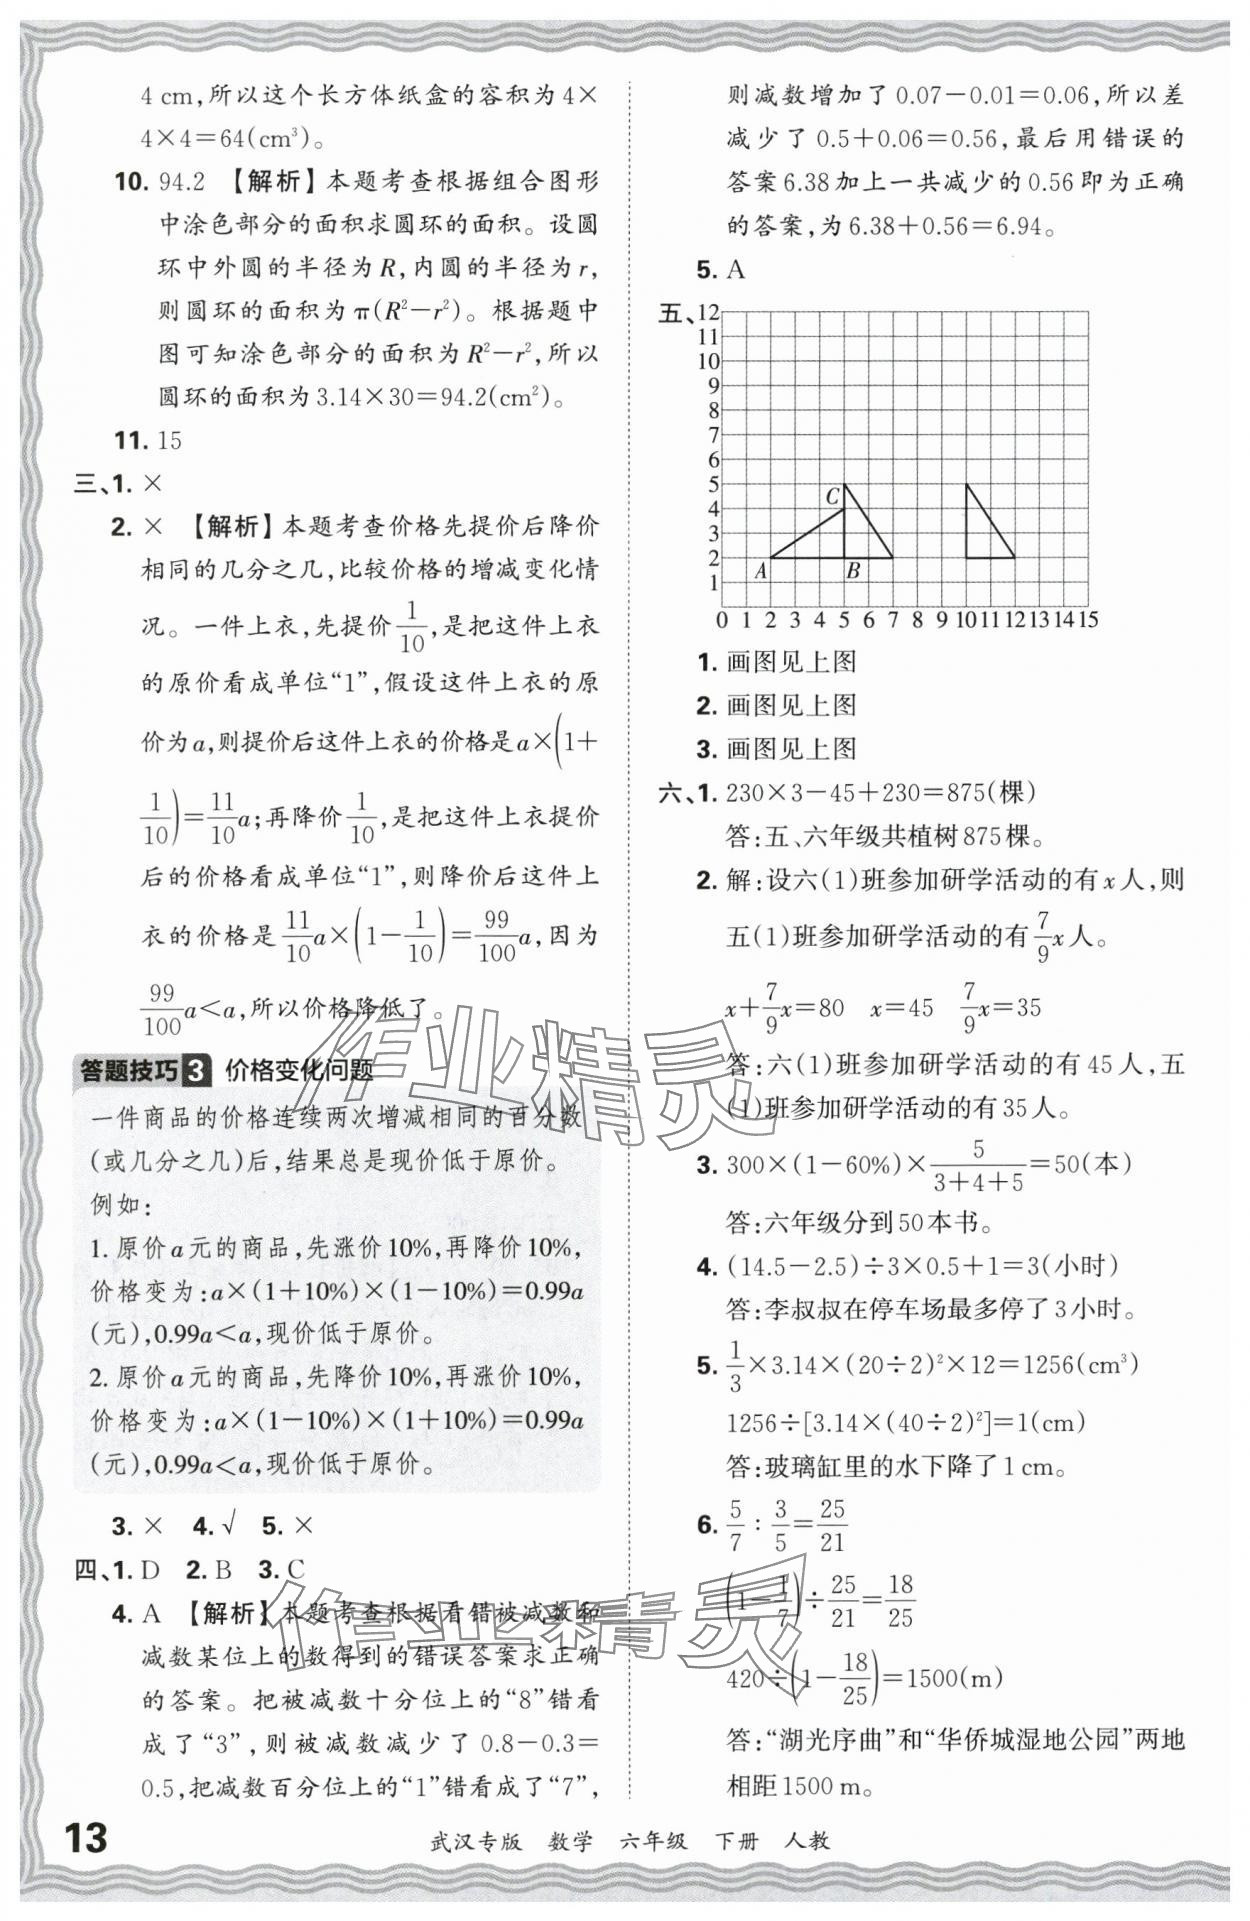 4 cm,所以这个长方体纸盒的容积为4×
4×4=64(cm³)。
10. 94.2 【解析】本题考查根据组合图形
中涂色部分的面积求圆环的面积。设圆
环中外圆的半径为R,内圆的半径为r,
则圆环的面积为π(R²-r²)。根据题中
图可知涂色部分的面积为R²-r²,所以
圆环的面积为3.14×30=94.2(cm²)。
11. 15
三、1. ×
2. × 【解析】本题考查价格先提价后降价
相同的几分之几,比较价格的增减变化情
况。一件上衣,先提价1/10,是把这件上衣
的原价看成单位“1”,假设这件上衣的原
价为a,则提价后这件上衣的价格是a×(1+
1/10)=11/10a;再降价1/10,是把这件上衣提价
后的价格看成单位“1”,则降价后这件上
衣的价格是11/10a×(1-1/10)=99/100a,因为
99/100a<a,所以价格降低了。
答题技巧3 价格变化问题
一件商品的价格连续两次增减相同的百分数
(或几分之几)后,结果总是现价低于原价。
例如:
1. 原价a元的商品,先涨价10%,再降价10%,
价格变为:a×(1+10%)×(1-10%)=0.99a
(元),0.99a<a,现价低于原价。
2. 原价a元的商品,先降价10%,再涨价10%,
价格变为:a×(1-10%)×(1+10%)=0.99a
(元),0.99a<a,现价低于原价。
3. × 4. √ 5. ×
四、1. D 2. B 3. C
4. A 【解析】本题考查根据看错被减数和
减数某位上的数得到的错误答案求正确
的答案。把被减数十分位上的“8”错看
成了“3”,则被减数减少了0.8-0.3=
0.5,把减数百分位上的“1”错看成了“7”,
则减数增加了0.07-0.01=0.06,所以差
减少了0.5+0.06=0.56,最后用错误的
答案6.38加上一共减少的0.56即为正确
的答案,为6.38+0.56=6.94。
5. A
五、12
11
10
9
8
7
6
5
4
3
2
1
C
A B
0 1 2 3 4 5 6 7 8 9 10 11 12 13 14 15
1. 画图见上图
2. 画图见上图
3. 画图见上图
六、1. 230×3-45+230=875(棵)
答:五、六年级共植树875棵。
2. 解:设六(1)班参加研学活动的有x人,则
五(1)班参加研学活动的有7/9x人。
x+7/9x=80 x=45 7/9x=35
答:六(1)班参加研学活动的有45人,五
(1)班参加研学活动的有35人。
3. 300×(1-60%)×5/(3+4+5)=50(本)
答:六年级分到50本书。
4. (14.5-2.5)÷3×0.5+1=3(小时)
答:李叔叔在停车场最多停了3小时。
5. 1/3×3.14×(20÷2)²×12=1256(cm³)
1256÷[3.14×(40÷2)²]=1(cm)
答:玻璃缸里的水下降了1 cm。
6. 5/7:3/5=25/21
(1-1/7)÷25/21=18/25
420÷(1-18/25)=1500(m)
答:“湖光序曲”和“华侨城湿地公园”两地
相距1500 m。
作业精灵
作业精灵
13
武汉专版 数学 六年级 下册 人教